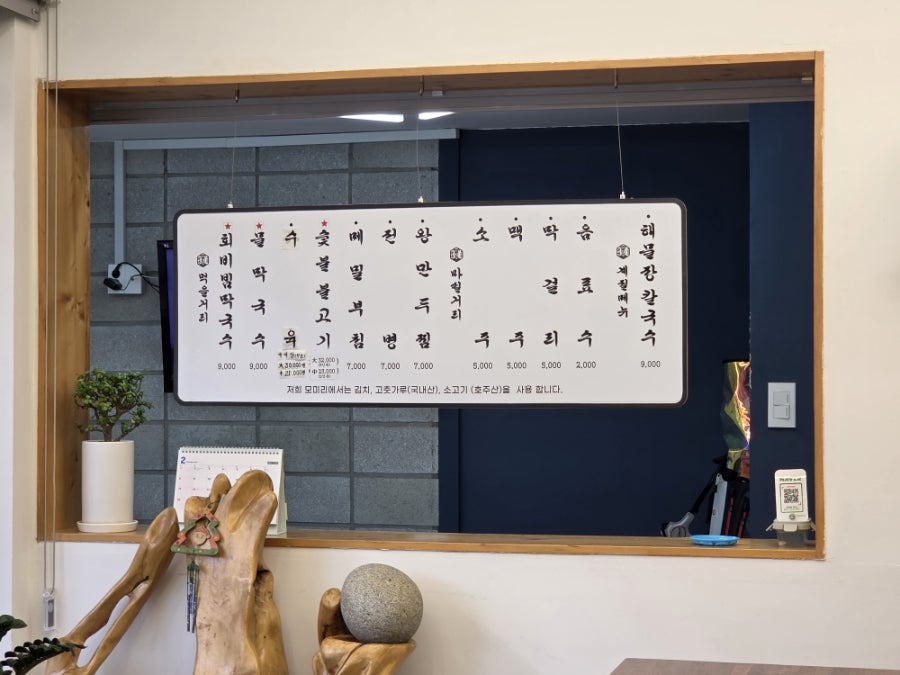 먹을거리
회비빔막국수
9,000
물막국수
9,000
수육
大 30,000원
中 21,000원
숯불불고기
(大 32,000)
(中 19,000)
메밀부침
7,000
전병
7,000
왕만두찜
7,000
마실거리
소주
5,000
맥주
5,000
막걸리
5,000
음료수
2,000
계절메뉴
해물장칼국수
9,000
저희 모미리에서는 김치, 고춧가루(국내산), 소고기 (호주산)을 사용 합니다.
2